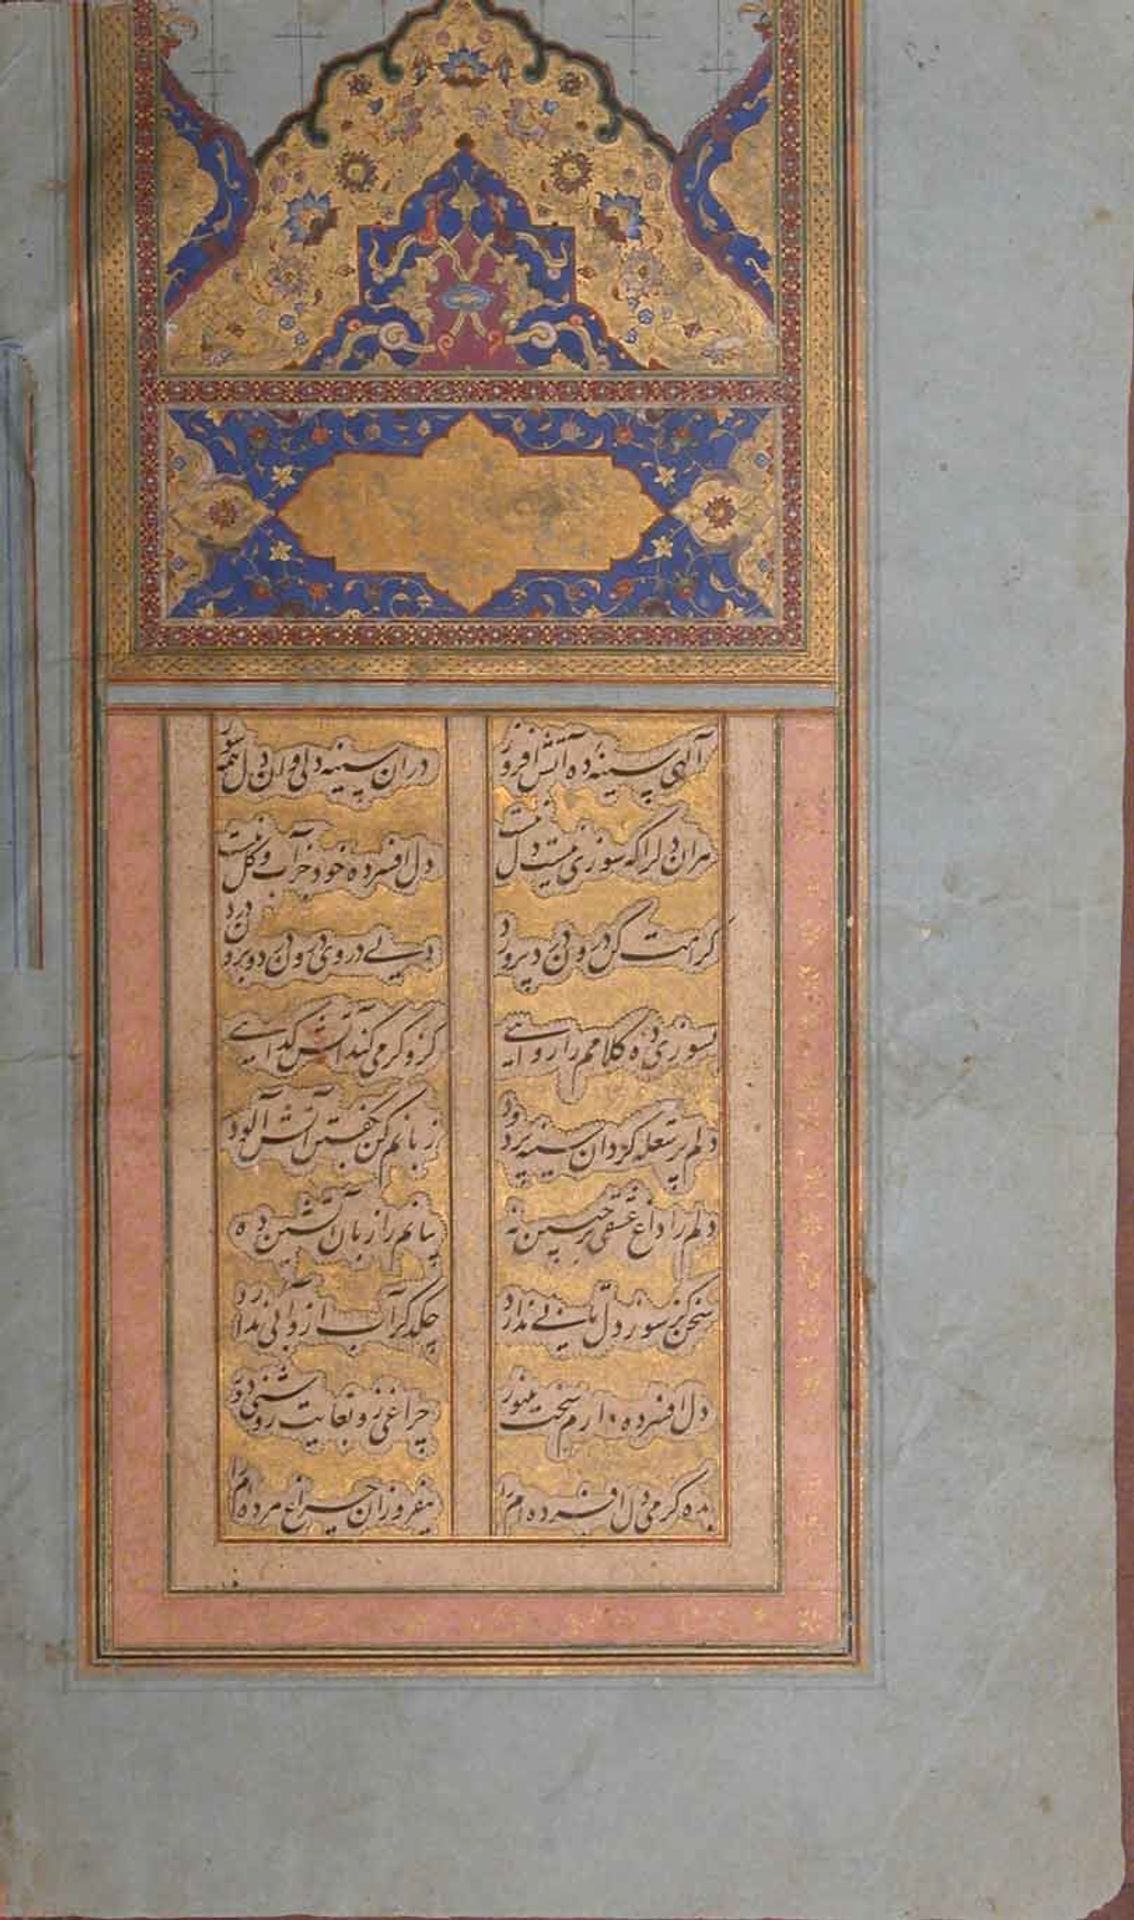 آلهی سینهٔ ده آتش افروز در ان سینه دلی وان دل همه سوز
هران دلرا که سوزی نیست دل نیست دل افسرده خود جز آب و کل نیست
کرامت کن درونی درد پرورد دلی در وی درون درد و برون درد
بسوزی ده کلامم را روایی کزو کرمی کند آتش کدایی
دلم پر شعله کردان سینه پر دود زبانم کن بکفتن آتش آلود
دلم را داغ عشقی بر جبین نه بیانم را زبان آتشین ده
سخن کز سوز دل تابی ندارد چکد کر آب ازو آبی ندارد
دل افسرده دارم سخت بینور چراغی زو بغایت روشنی دور
بده کرمی دل افسرده ام را بیفروزان چراغ مرده ام را